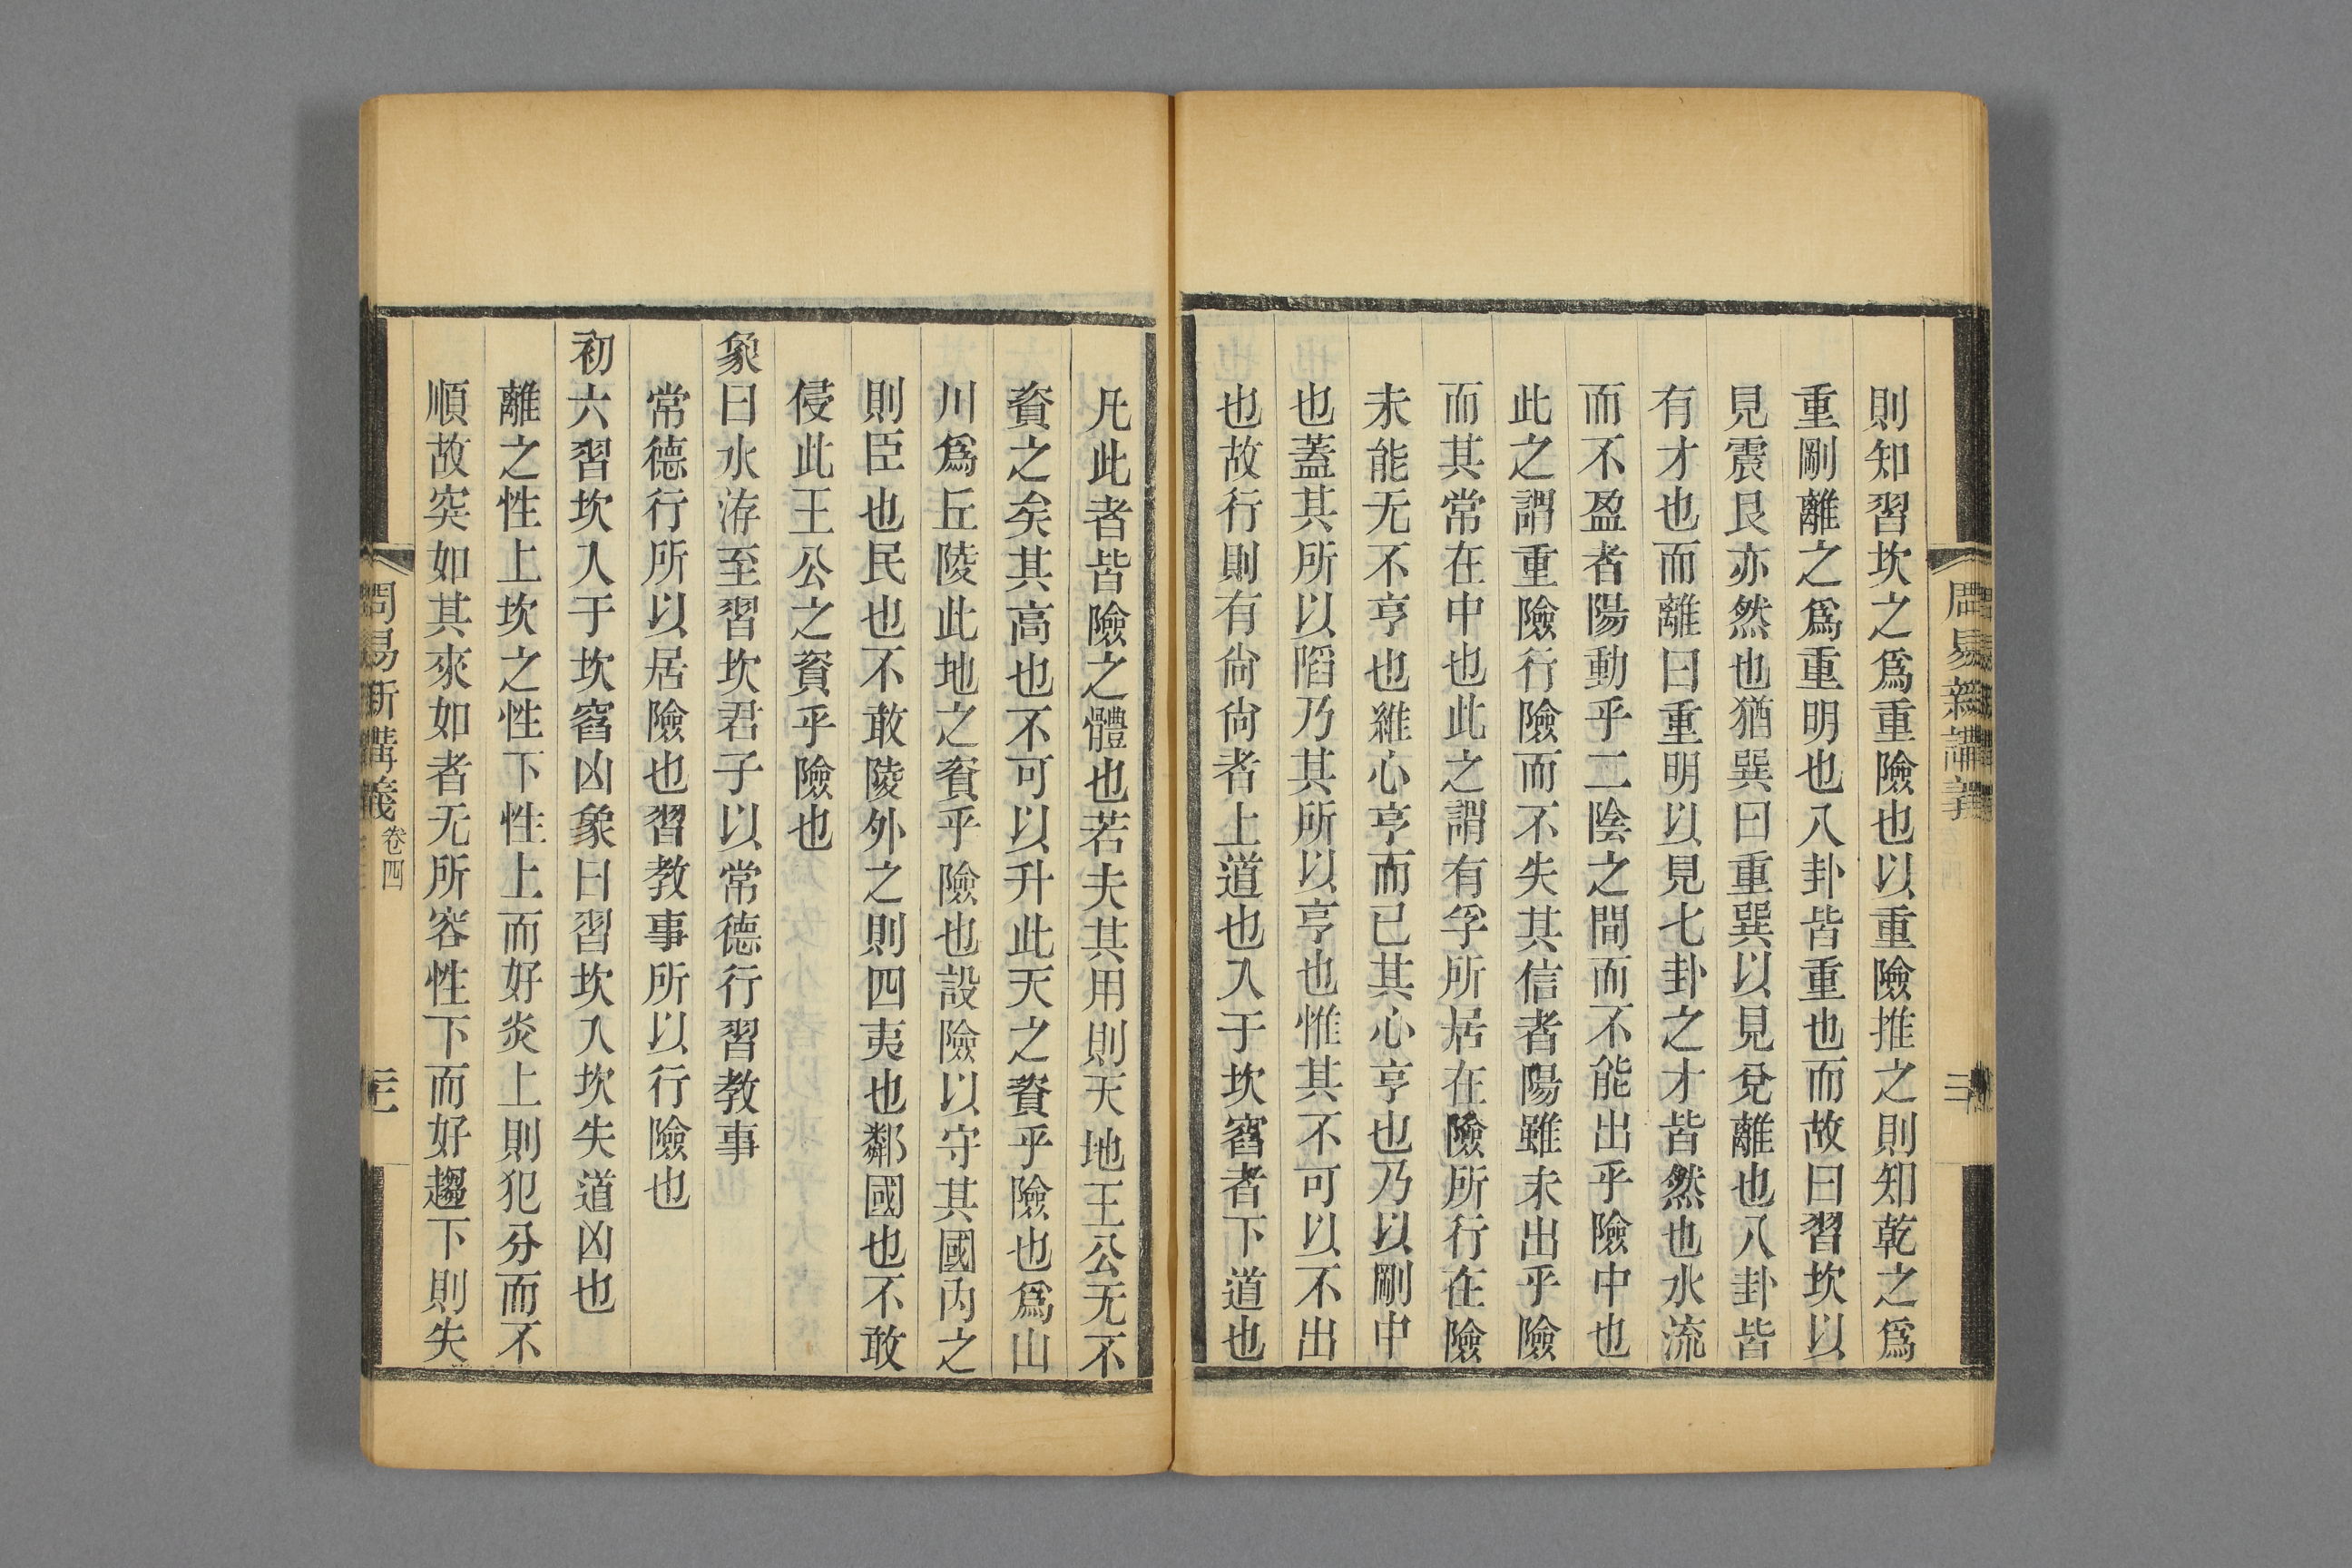 則知習坎之爲重險也以重險推之則知乾之爲
重剛離之爲重明也八卦皆重也而故曰習坎以
見震艮亦然也猶巽曰重巽以見兌離也八卦皆
有才也而離曰重明以見七卦之才皆然也水流
而不盈者陽動乎二陰之間而不能出乎險中也
此之謂重險行險而不失其信者陽雖未出乎險
而其常在中也此之謂有孚所居在險所行在險
未能无不亨也維心亨而已其心亨也乃以剛中
也蓋其所以陷乃其所以亨也惟其不可以不出
也故行則有尙尙者上道也入于坎窞者下道也
凡此者皆險之體也若夫其用則天地王公无不
資之矣其高也不可以升此天之資乎險也爲山
川爲丘陵此地之資乎險也設險以守其國內之
則臣也民也不敢陵外之則四夷也鄰國也不敢
侵此王公之資乎險也
象曰水洊至習坎君子以常德行習教事
常德行所以居險也習教事所以行險也
初六習坎入于坎窞凶象曰習坎入坎失道凶也
離之性上坎之性下性上而好炎上則犯分而不
順故突如其來如者无所容性下而好趨下則失
周易新講義 卷四